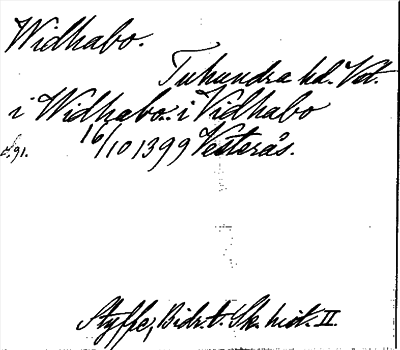 Widhabo.
Tuhundra hd. Vst.
i Widhabo. i Vidhabo
16/10 1399 Vesterås.
s. 91.
Styffe, Bidr. t. Sk. hist. II.